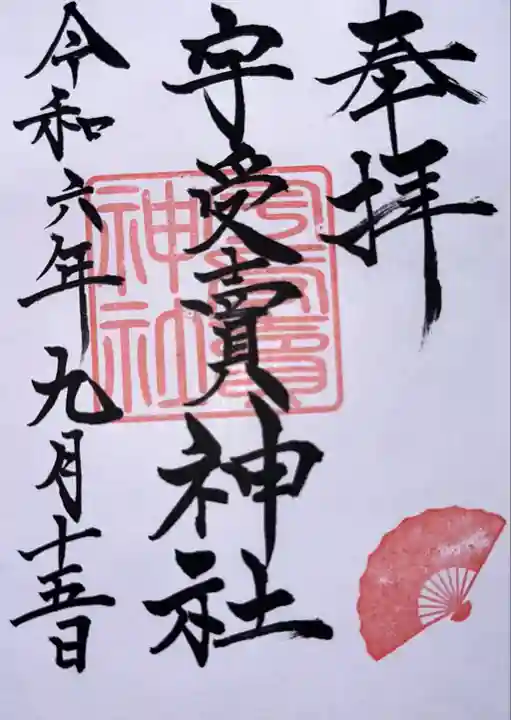 奉拝
宇受賣神社
令和六年九月十五日
宇受賣神社